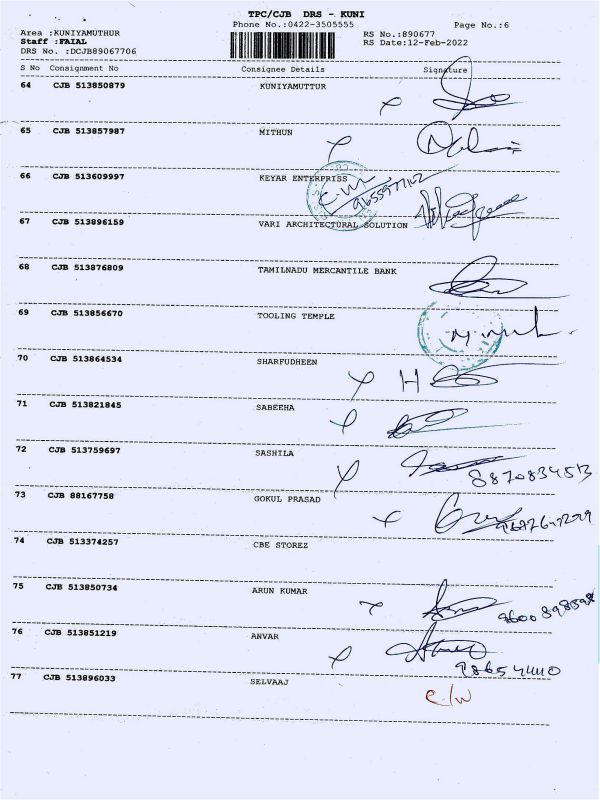 TPC/CJB DRS - KUNI
Phone No.:0422-3505555 Page No.:6
Area :KUNIYAMUTHUR RS No.:890677
Staff :FAIAL RS Date:12-Feb-2022
DRS No. :DCJB89067706
S No Consignment No Consignee Details Signature
64 CJB 513850879 KUNIYAMUTTUR
65 CJB 513857987 MITHUN
66 CJB 513609997 KEYAR ENTERPRISS
67 CJB 513896159 VARI ARCHITECTURAL SOLUTION
68 CJB 513876809 TAMILNADU MERCANTILE BANK
69 CJB 513856670 TOOLING TEMPLE
70 CJB 513864534 SHARFUDHEEN
71 CJB 513821845 SABEEHA
72 CJB 513759697 SASHILA
8870834513
73 CJB 88167758 GOKUL PRASAD
74 CJB 513374257 CBE STOREZ
75 CJB 513850734 ARUN KUMAR
76 CJB 513851219 ANVAR
77 CJB 513896033 SELVAAJ
c/w